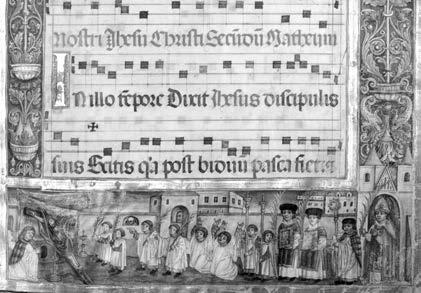 Nostri Jhesu Christi Secūdū Matheum
In illo tēpore Dixit Jhesus discipulis
suis Scitis qa post biduum pasca fiet